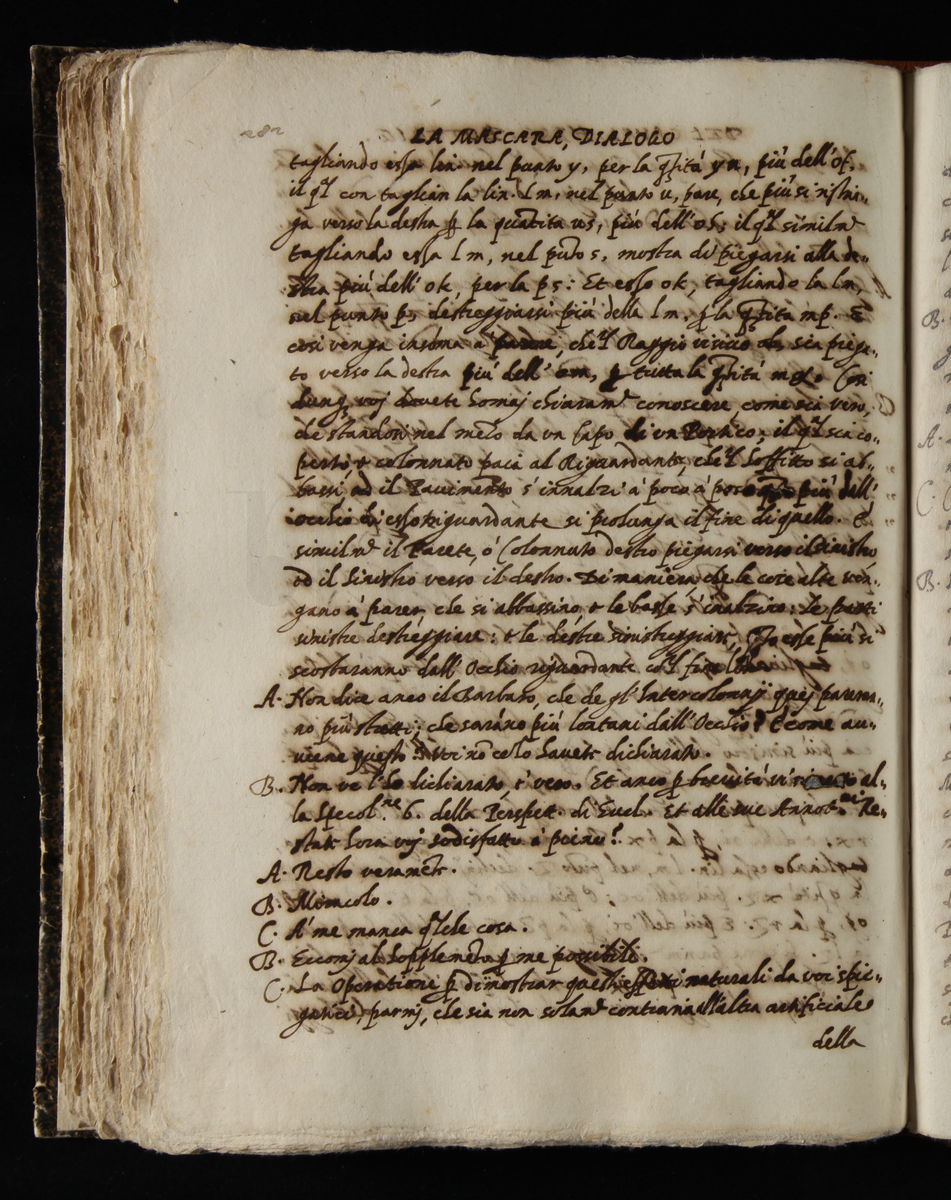 282
LA MASCARA, DIALOGO
tagliando essa lin. nel punto y, per la q̃ſtità yn, più dell'of,
il q̃l con tagliar la lin. lm, nel punto u, pare, che più si ristrin=
ga verso la destra ꝑ la quãtita us, più dell'oh; il q̃l similmẽ
tagliando essa lm, nel pũto s, mostra di piegarsi alla de=
stra più dell'ok, per la ps: Et esso ok, tagliando la lm,
nel punto p, destreggiarsi più della lm, ꝑ la mp. E
così venga insõma à parere, che'l Raggio visivo sia piega=
to verso la destra più dell' ꝑ tutta la
dunq, voj dovete homaj chiaramẽ conoscere, come sia vero,
che standosi nel mezo da un capo di un Portico, il q̃l sia co=
perto, e colonnato paia al Riguardante, che'l Soffitto si ab=
bassi, ed il Pavimento s'innalzi à poco à poco più dell'
occhio di esso riguardante si prolunga il fine di quello. E
similmẽ il Parete, ò Colonnato destro piegarsi verso il sinistro
ed il sinistro verso il destro. Di maniera che le cose alte ven=
gano à parer che si abbassino, e le basse s'inalzino: Le parti
sinistre destreggiare: e le destre sinistreggiare, più si
scostaranno dall'Occhio riguardante
A. Non dice anco il Barbaro, che de gl'Intercolonnij quej paranno
no più stretti; che sarãno più lontani dall'Occhio? E come av=
viene questo? Voi nõ ce lo havete dichiarato.
B. Non ve l'hò dichiarato è vero. Et anco ꝑ brevità vi rimetto al=
la Specol.ne 6. della Perspett. di Eucl. Et alle sue Annot.ni Re=
state hora voj sodisfatto à pieno?
A. Resto veramẽte.
B. Miracolo.
C. A' me manca q̃lche cosa.
B. Eccomj al Supplemẽto ꝑ me possibile.
C. La Operatione ꝑ dimostrar questi naturali da voi spie=
gatici, parmj, che sia non solamẽ contraria all'altra artificiale
della